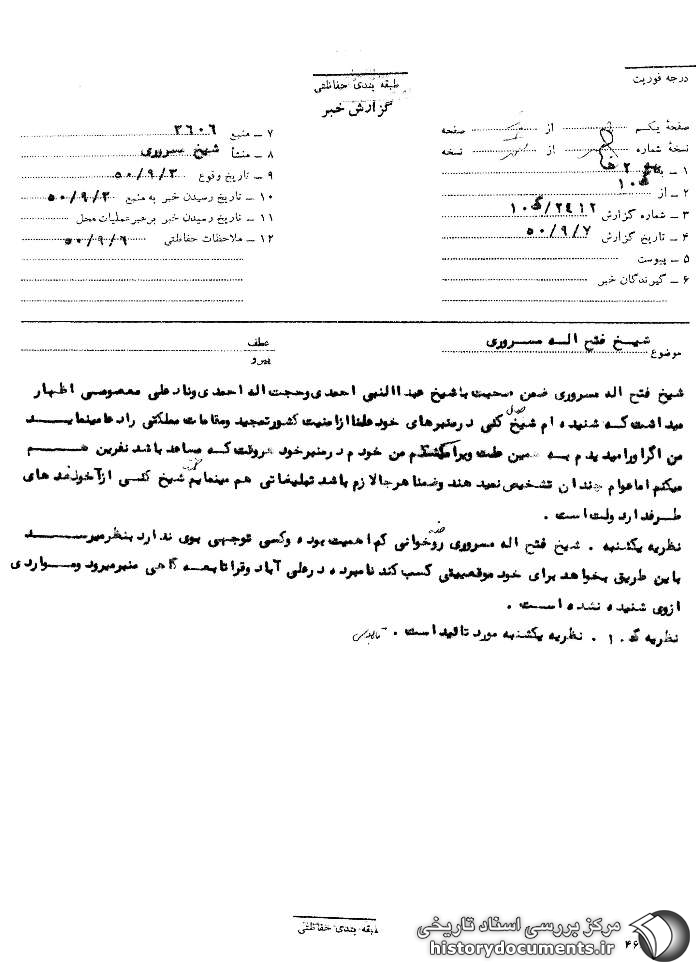 درجه فوریت
طبقه بندی حفاظتی
گزارش خبر
صفحهٔ یکم از صفحه
نسخهٔ شماره از نسخه
۱ ــ
۲ ــ از ۱۰ ﻫ
۳ ــ شماره گزارش ۲۴۱۲/۱۰ ﻫ
۴ ــ تاریخ گزارش ۵۰/۹/۷
۵ ــ پیوست
۶ ــ گیرندگان خبر
۷ ــ منبع ۳۶۰۶
۸ ــ منشأ شیخ مسروری
۹ ــ تاریخ وقوع ۵۰/۹/۳
۱۰ ــ تاریخ رسیدن خبر به منبع ۵۰/۹/۳
۱۱ ــ تاریخ رسیدن خبر برهبر عملیات محل
۱۲ ــ ملاحظات حفاظتی ۵۰/۹/۶
موضوع شیخ فتح اله مسروری
عطف
پیرو
شیخ فتح اله مسروری ضمن صحبت باشیخ عبدالنبی احمدی وحجت اله احمدی ونادعلی معصومی اظهار
میداشت که شنیده ام شیخ کفی درمنبرهای خود علنا ازامنیت کشورتمجید ومقامات مملکتی رادعامینماید
من اگراورامیدیدم به همین علت ویرامیکشتم من خودم درمنبرخود هروقت که مساعد باشد نفرین هم
میکنم اماعوام چندان تشخیص نمیدهند وضمنا هرجالازم باشد تبلیغاتی هم مینمایم شیخ کفی ازآخوندهای
طرفدار دولت است .
نظریه یکشنبه . شیخ فتح اله مسروری روضه خوانی کم اهمیت بوده وکسی توجهی بوی ندارد بنظرمیرسد
باین طریق بخواهد برای خود موقعیتی کسب کند نامبرده درعلی آباد وقراتابعه گاهی منبرمیرود ومواردی
ازوی شنیده نشده است .
نظریه ۱۰ ﻫ . نظریه یکشنبه مورد تائیداست .
طبقه بندی حفاظتی
مرکز بررسی اسناد تاریخی
historydocuments.ir
۴۶